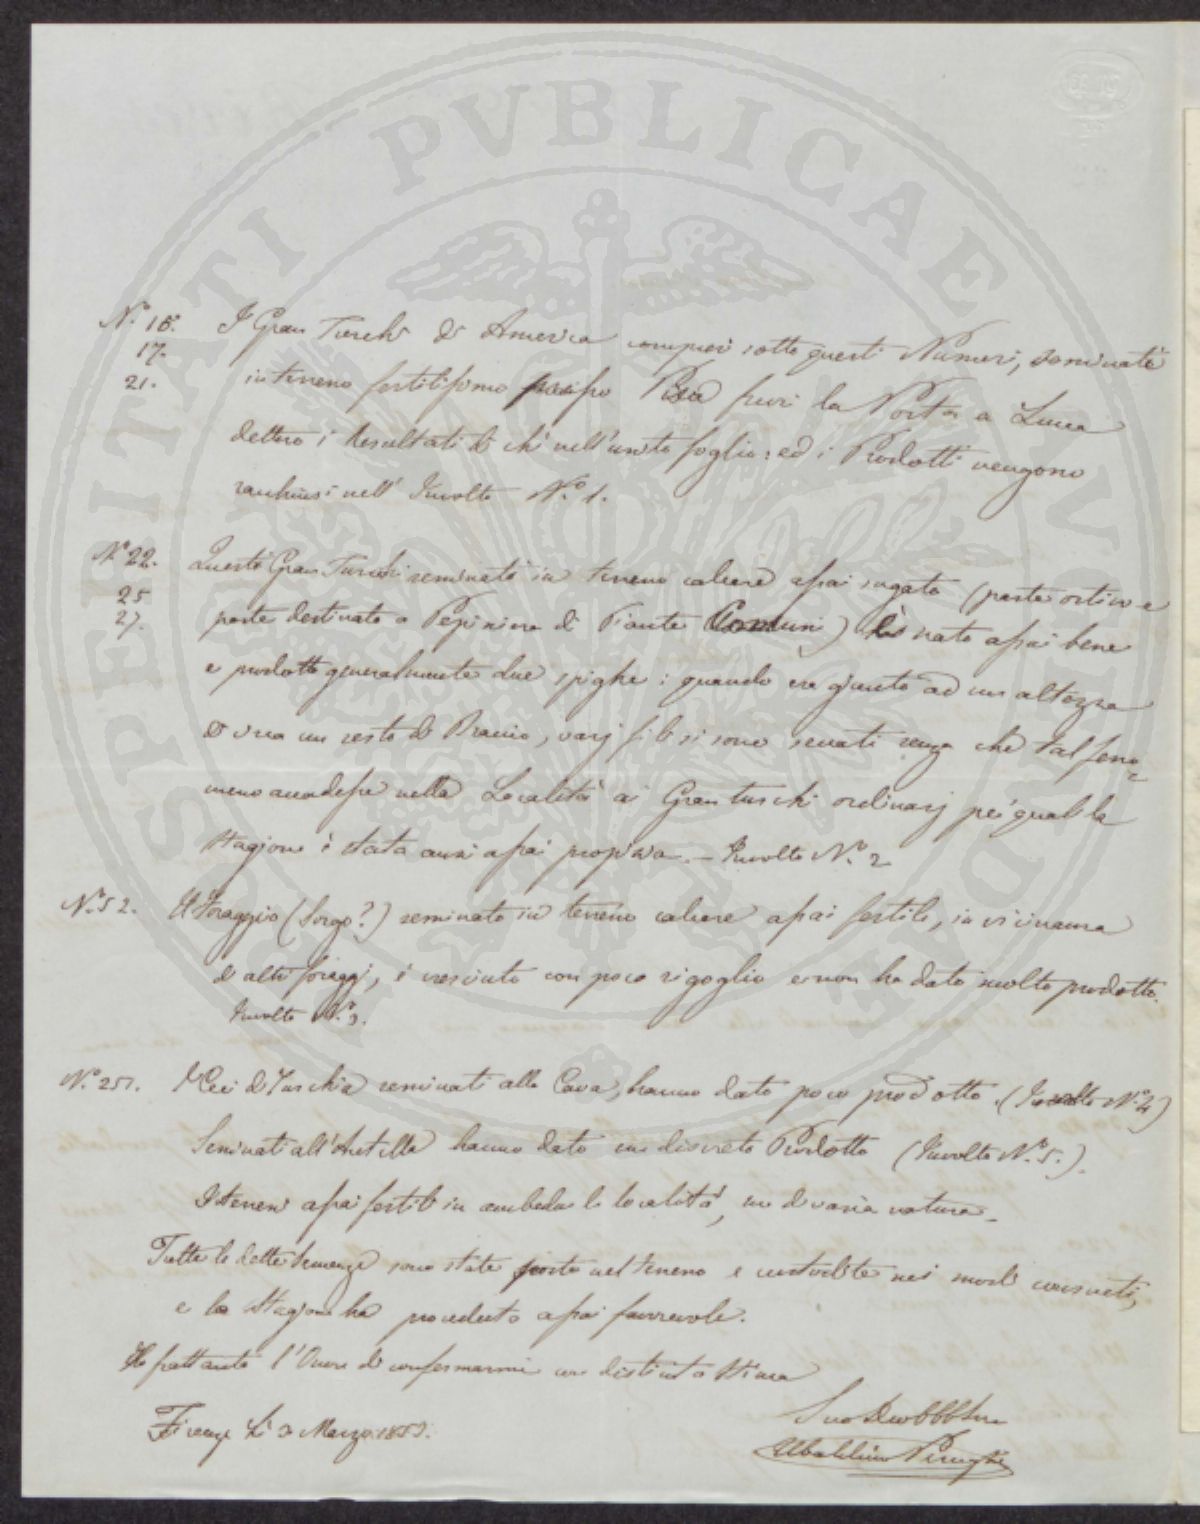 PROSPERITATI PVBLICAE AVGENDAE
N.° 16. I Gran Turchi di America compresi sotto questi Numeri, seminati
17.
21. in terreno fertilissimo presso Pisa fuori la Porta a Lucca
dettero i Resultati di chè nell'unito foglio: ed i Prodotti vengono
racchiusi nell' Involto N.° 1.
N.° 22. Questo Gran Turchi seminato in terreno calcare assai sugato (parte ortivo e
25
27. parte destinato a Pepiniera di Piante Comuni) è nato assai bene
e prodotto generalmente due spighe: quando era giunto ad un altezza
di circa un resto di Braccio, varj fili si sono seccati senza che tal feno=
meno accadesse nella Località ai Gran turchi ordinarj pei quali la
Stagione è stata anzi assai propizia. – Involto N.° 2
N.° 52. Il Foraggio (Sorgo?) seminato in terreno calcare assai fertile, in vicinanza
di altri foraggi, è cresciuto con poco rigoglio e non ha dato molto prodotto.
Involto N.° 3.
N.° 251. I Ceci di Turchia seminati alla Cava, hanno dato poco prodotto. (Involto N.° 4)
Seminati all' hanno dato un discreto Prodotto (Involto N.° 5.).
I terreni assai fertili in ambedue le località, ma di varia natura.
Tutte le dette Semenze sono state poste nel terreno e custodite nei modi consueti,
e la Stagione ha proceduto assai favorevole.
Ho frattanto l'Onore di confermarmi con distinta Stima
Firenze li 3 Marzo 185.
Suo
Ubaldino Peruzzi